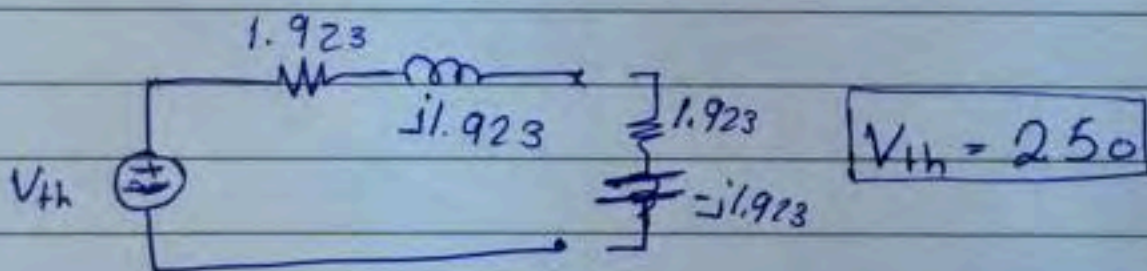 1.923
j1.923
1.923
Vth = 250
Vth
-j1.923